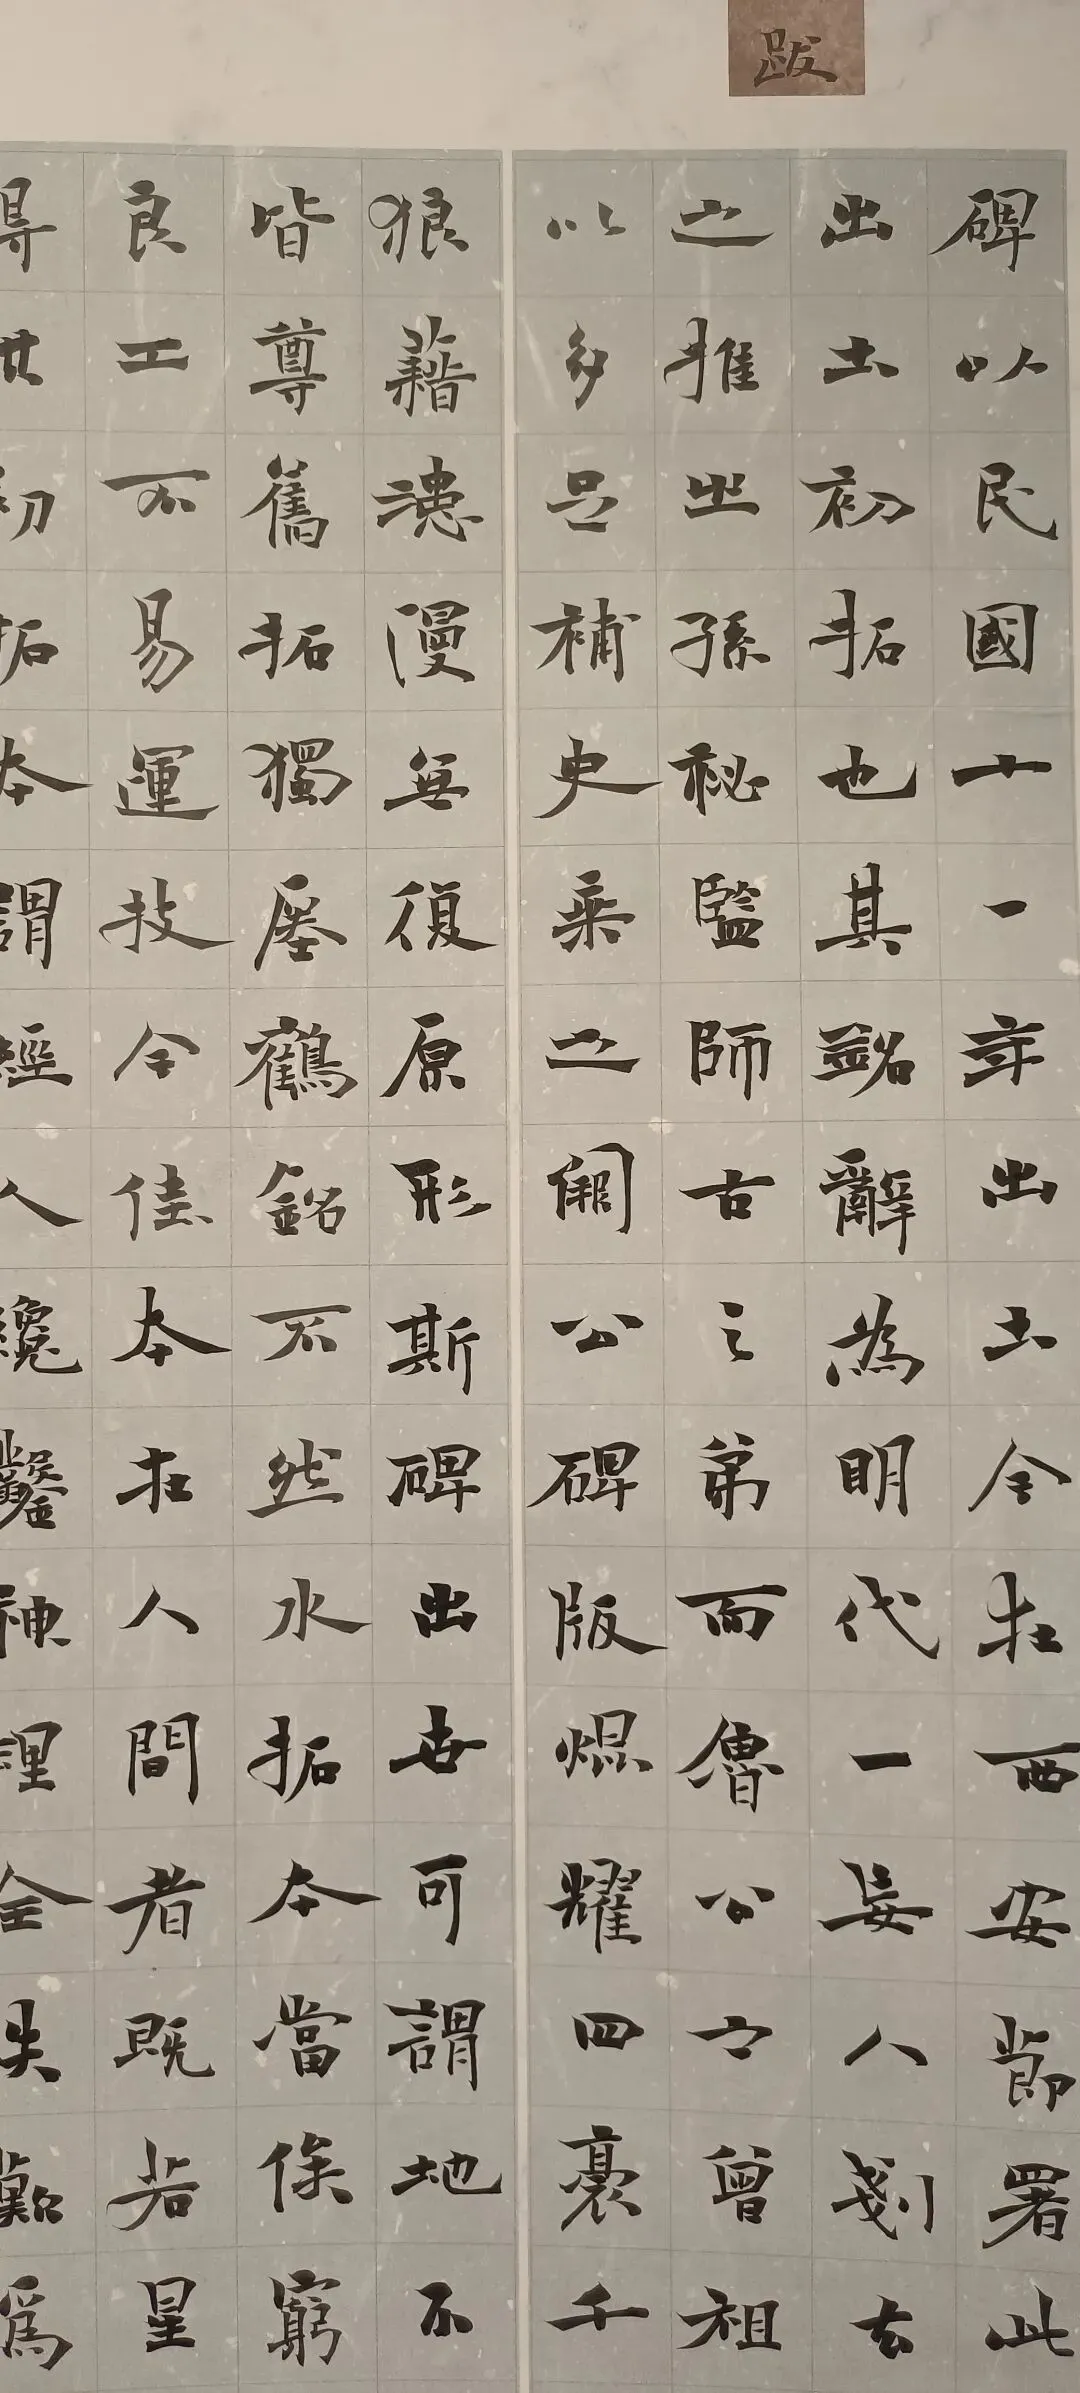 跋
碑以民國十一年出土今在西安莭署此
出土初拓也其銘辭為明代一妄人剗去
之推之孫秘監師古之弟而魯公之曾祖
以多足補史乘之闕公碑版焜耀四裔千
狼藉漶漫無復原形斯碑出世可謂地不
皆尊舊拓獨瘞鶴銘不然水拓本當係窮
良工不易運技今佳本在人間者既若星
初拓本謂經人纔鑿神理全失為